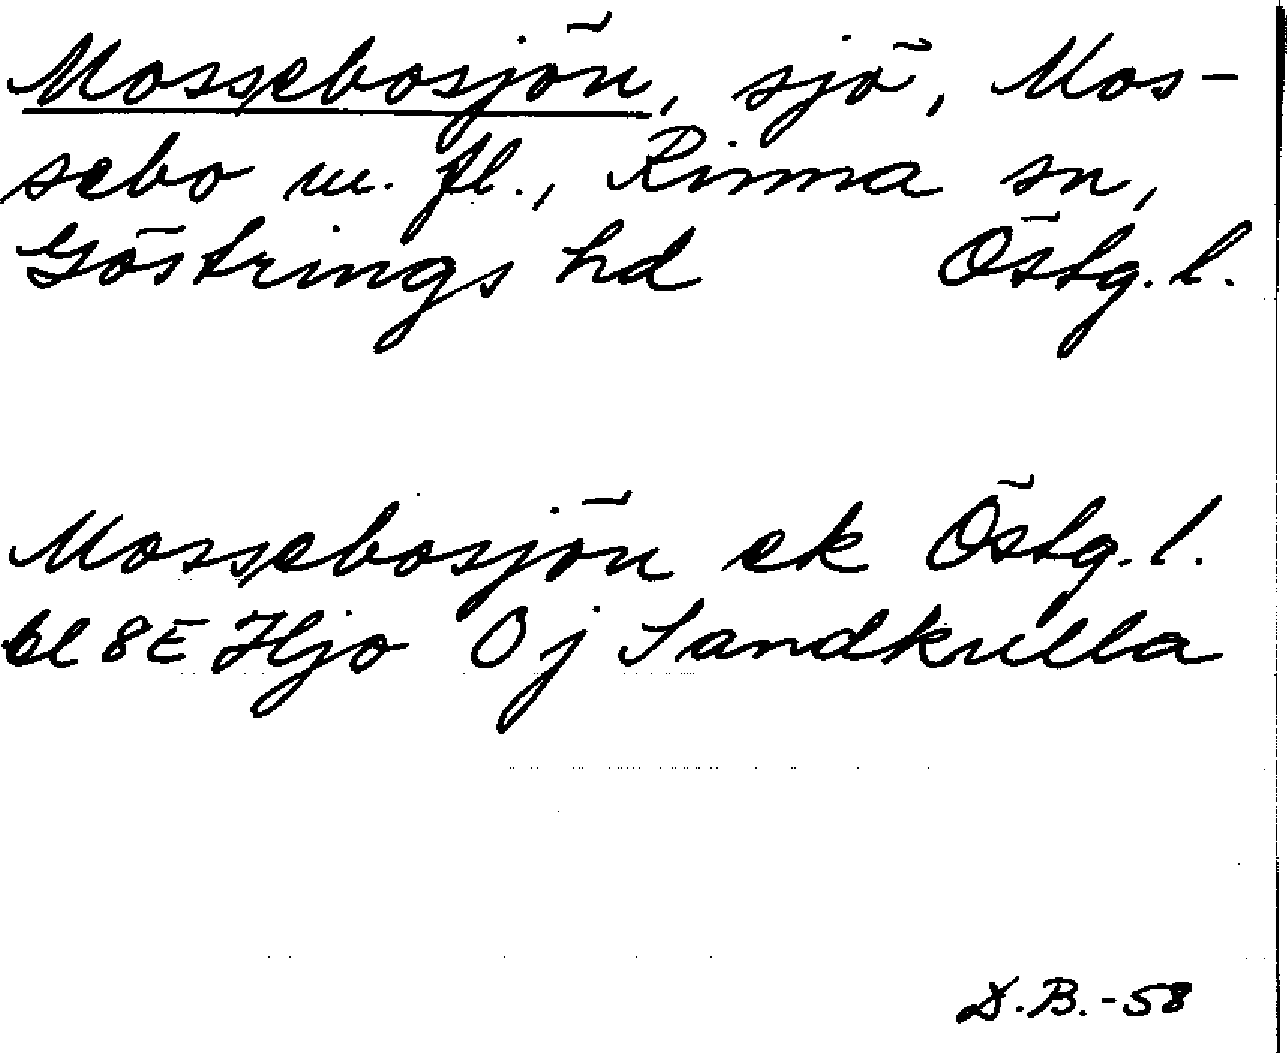 Mossebosjön, sjö, Mos-
sebo m. fl., Rinna sn,
Göstrings hd Östg. l.
Mossebosjön ek Östg. l.
bl 8E Hjo 0j Sandkulla
D.B.-58